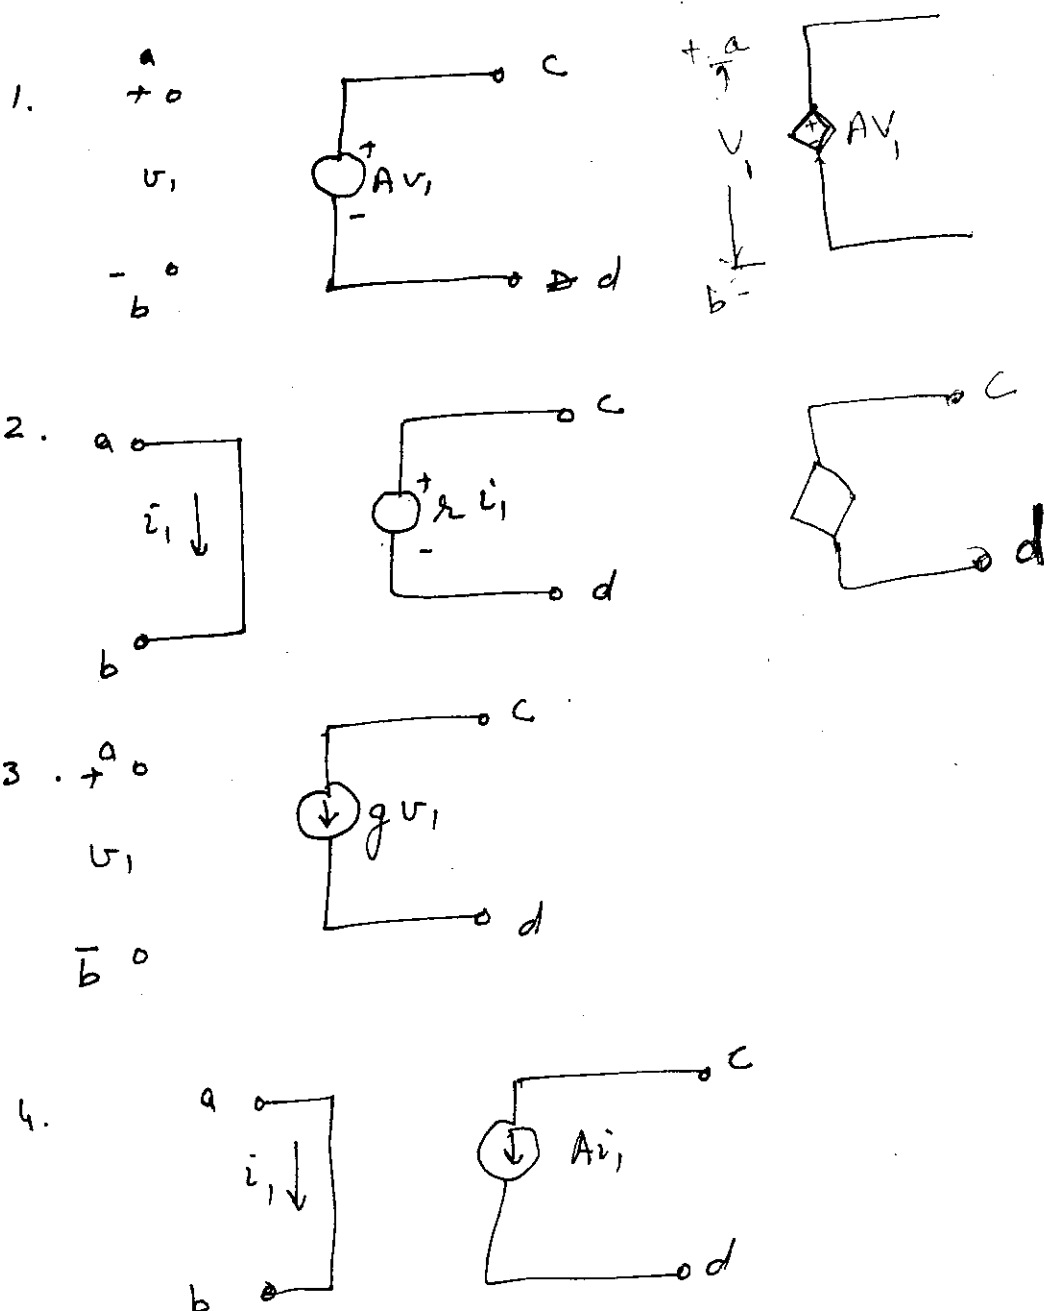 1.
a
+
v₁
-
b
+
A v₁
-
c
d
+ a
V₁
b -
+
-
AV₁
2.
a
i₁ ↓
b
+
r i₁
-
c
d
c
d
3.
a
+
v₁
-
b
↓
g v₁
c
d
4.
a
i₁ ↓
b
↓
A i₁
c
d